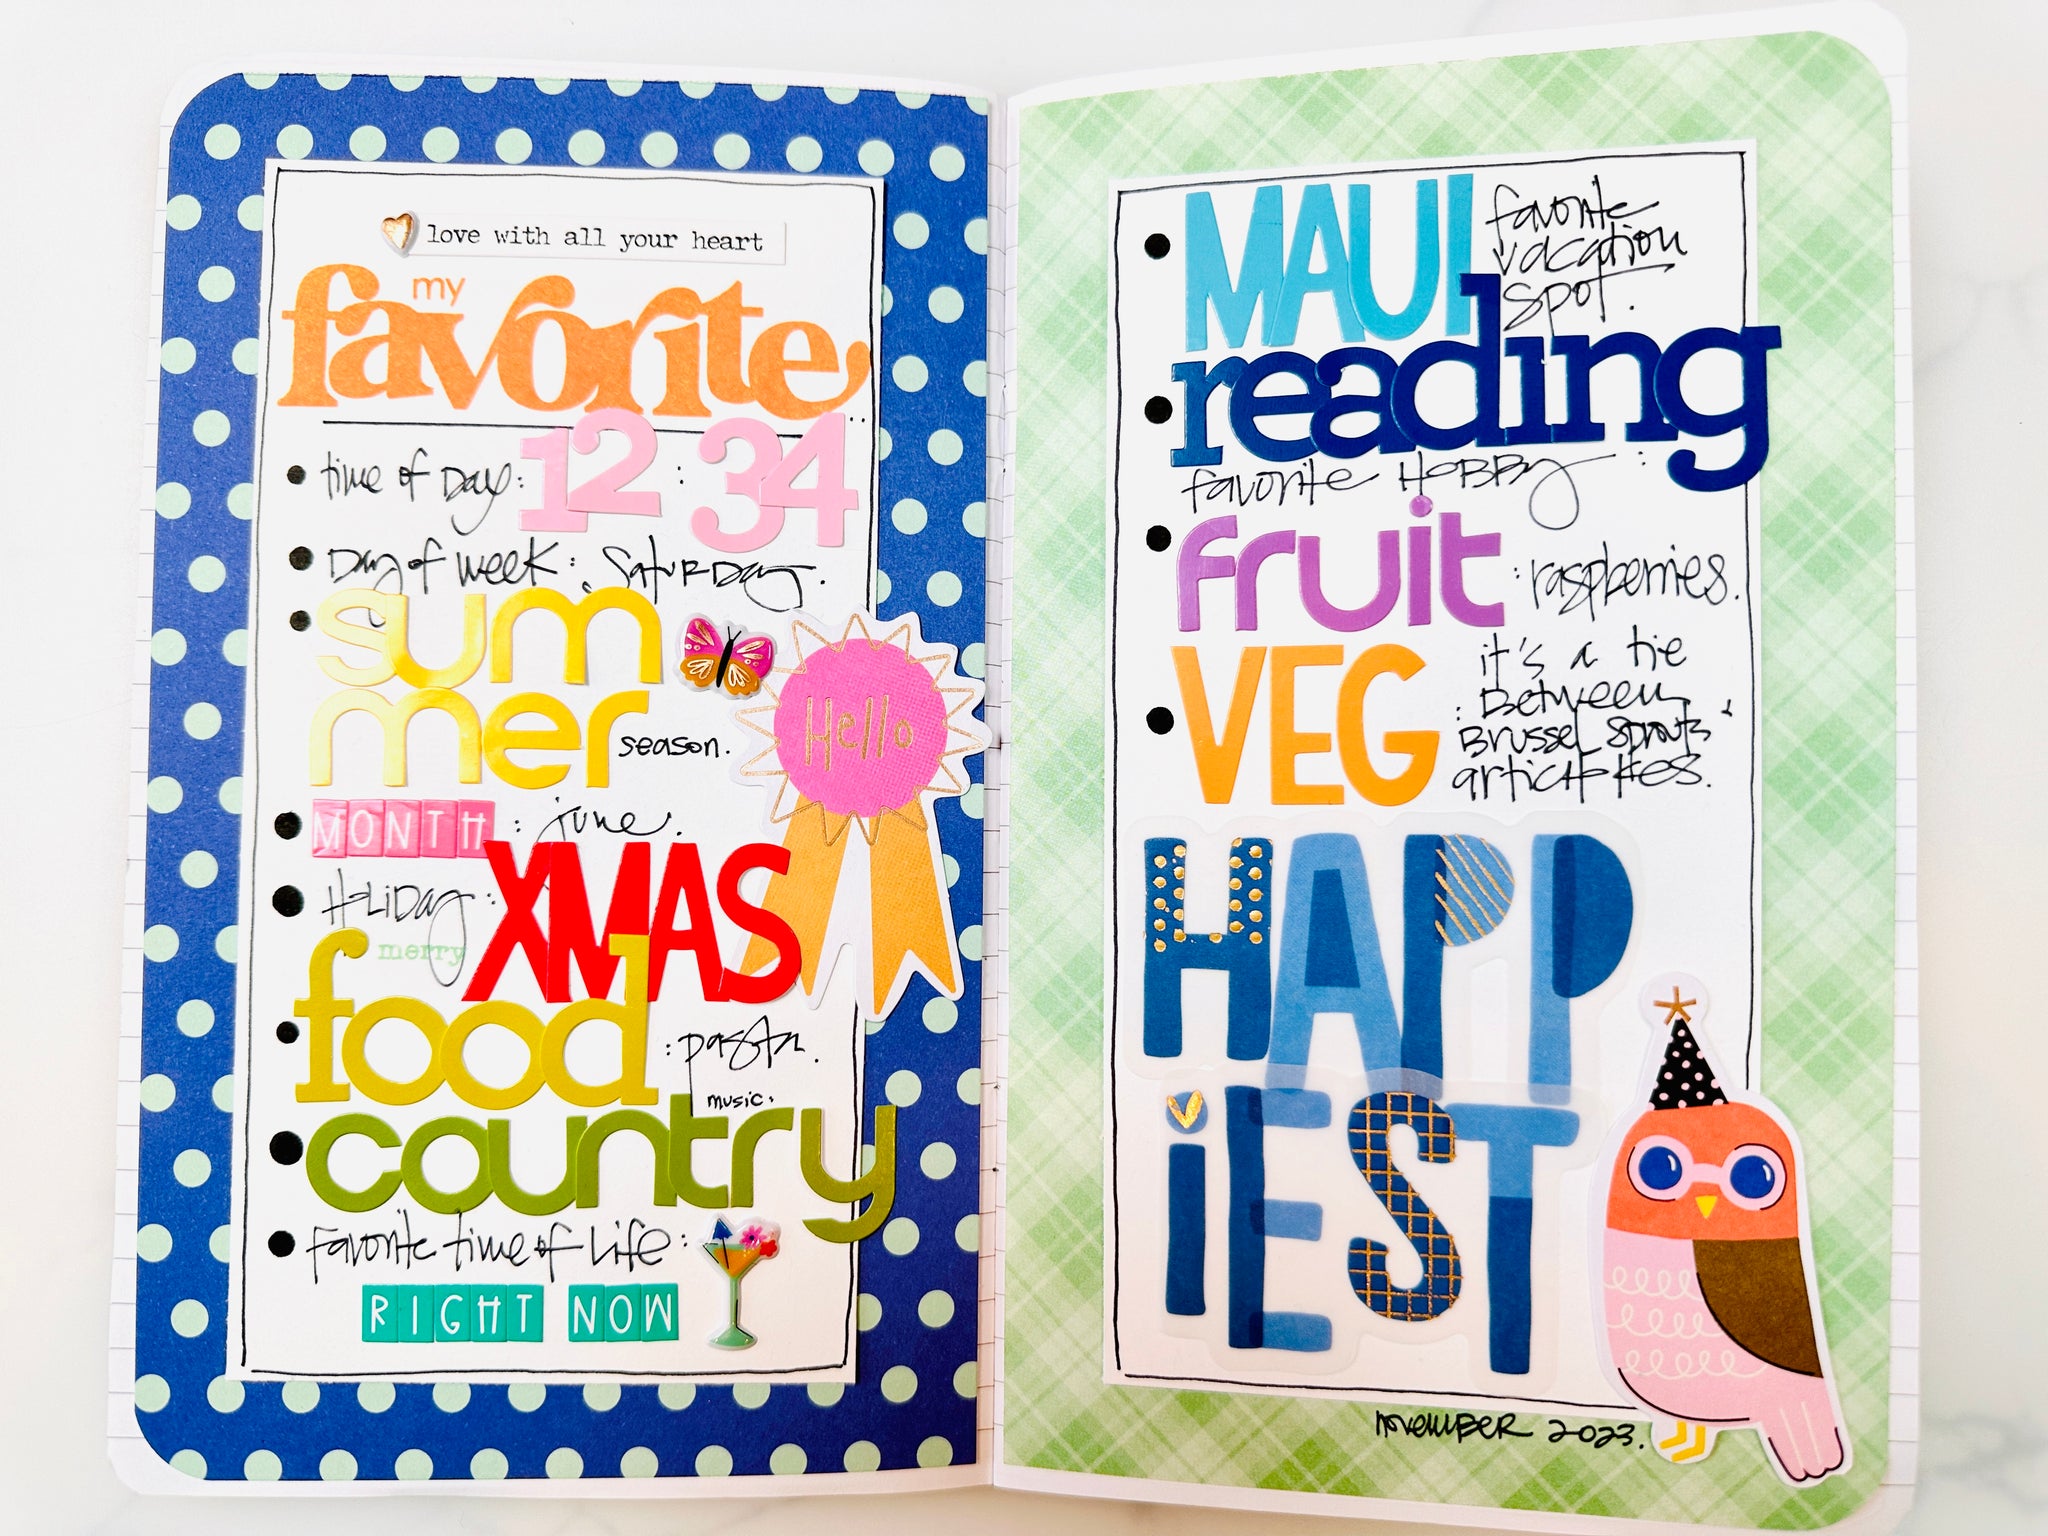 love with all your heart
my
favorite...
time of Day: 12:34
Day of week: Saturday.
sum
mer season.
MONTH : june.
HoLiDay: XMAS
merry
food : pasta.
country music.
Favorite time of Life:
RIGHT NOW
Hello
MAUI favorite
vacation
spot.
reading
favorite HoBBy:
fruit : raspberries.
VEG : it's a tie
Between
Brussel sprouts +
artichokes.
HAPP
iEST
november 2023.